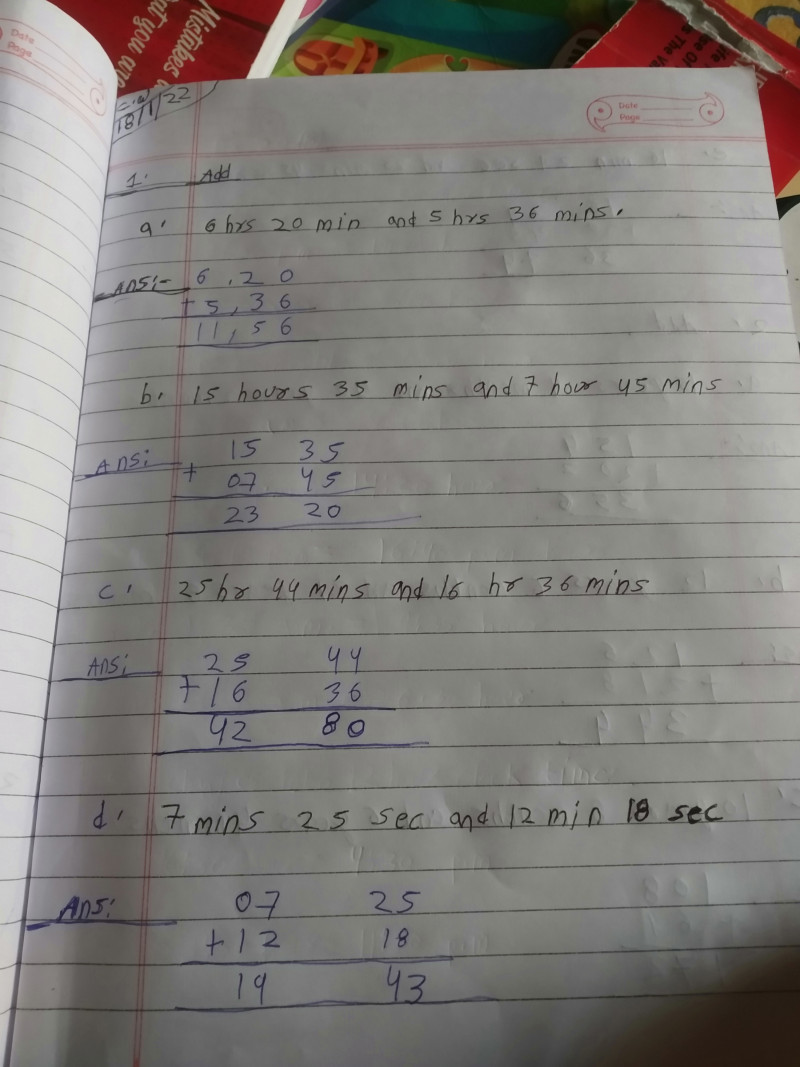 Date
Page
Mistakes
but you are
C.W
18/1/22
Date
Page
1. Add
a. 6 hrs 20 min and 5 hrs 36 mins.
Ans:- 6 . 2 0
+ 5 , 3 6
11 , 5 6
b. 15 hours 35 mins and 7 hour 45 mins
Ans: 15 35
+ 07 45
23 20
c. 25 hr 44 mins and 16 hr 36 mins
Ans: 25 44
+ 16 36
42 80
d. 7 mins 25 sec and 12 min 18 sec
Ans: 07 25
+ 12 18
19 43